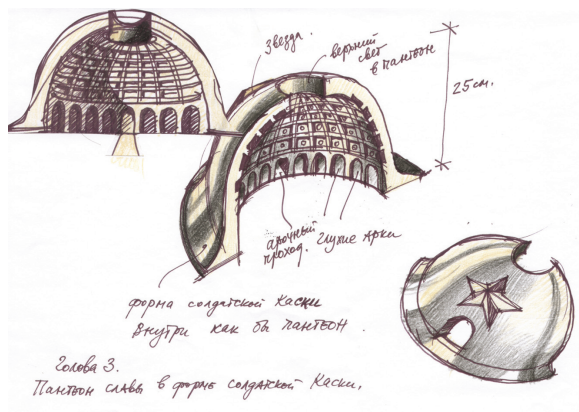 звезда.
верхний
свет
в пантеон
25 см.
арочный
проход.
глухие арки
форма солдатской каски
внутри как бы пантеон.
Голова 3.
Пантеон славы в форме солдатской каски.